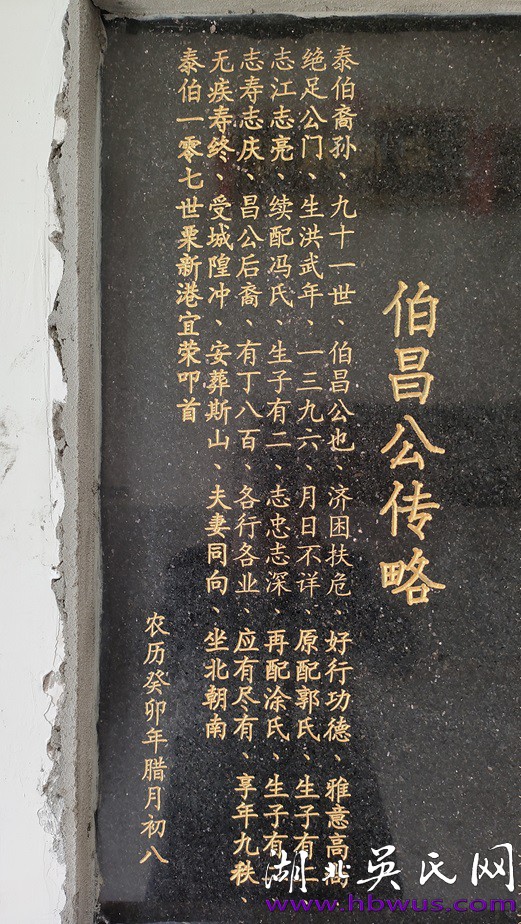 伯昌公传略
泰伯裔孙、九十一世、伯昌公也、济困扶危、好行功德、雅意高
绝足公门、生洪武年、一三九六、月日不详、原配郭氏、生子有二
志江志亮、续配冯氏、生子有二、志忠志深、再配涂氏、生子有
志寿志庆、昌公后裔、有丁八百、各行各业、应有尽有、享年九秩、
无疾寿终、受城隍冲、安葬斯山、夫妻同向、坐北朝南
泰伯一零七世栗新港宜荣叩首
农历癸卯年腊月初八
湖北吴氏网
www.hbwus.com